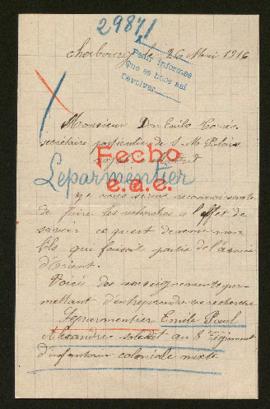 29871
Cherbourg le 26 Mai 1916
Pedir informes
que se haga así
Devolver
Monsieur Don Emilo
secrétaire particulier de S. M. le Roi
Fecho
Leparmentier
e.a.e.
je vous serais reconnaissant
de faire les recherches à l'effet de
savoir ce qu'est devenu mon
fils qui faisait partie de l'armée
d'Orient.
Voici des renseignements per
mettant d'entreprendre ces recherches
Leparmentier Emile Paul
Alexandre soldat au 8e Régiment
d'infanterie coloniale mixte